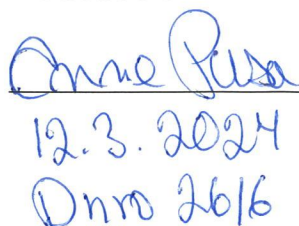 Anne Piisa
12.3.2024
Dnro 2616